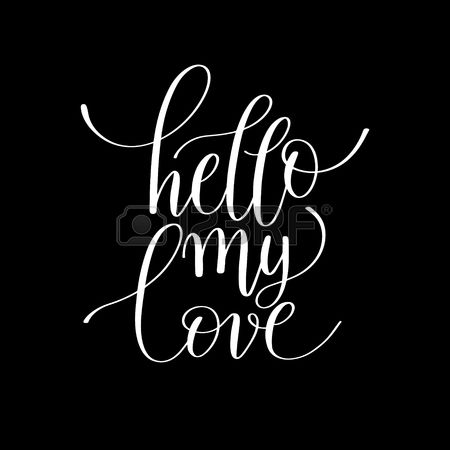 hello
my
love
123RF